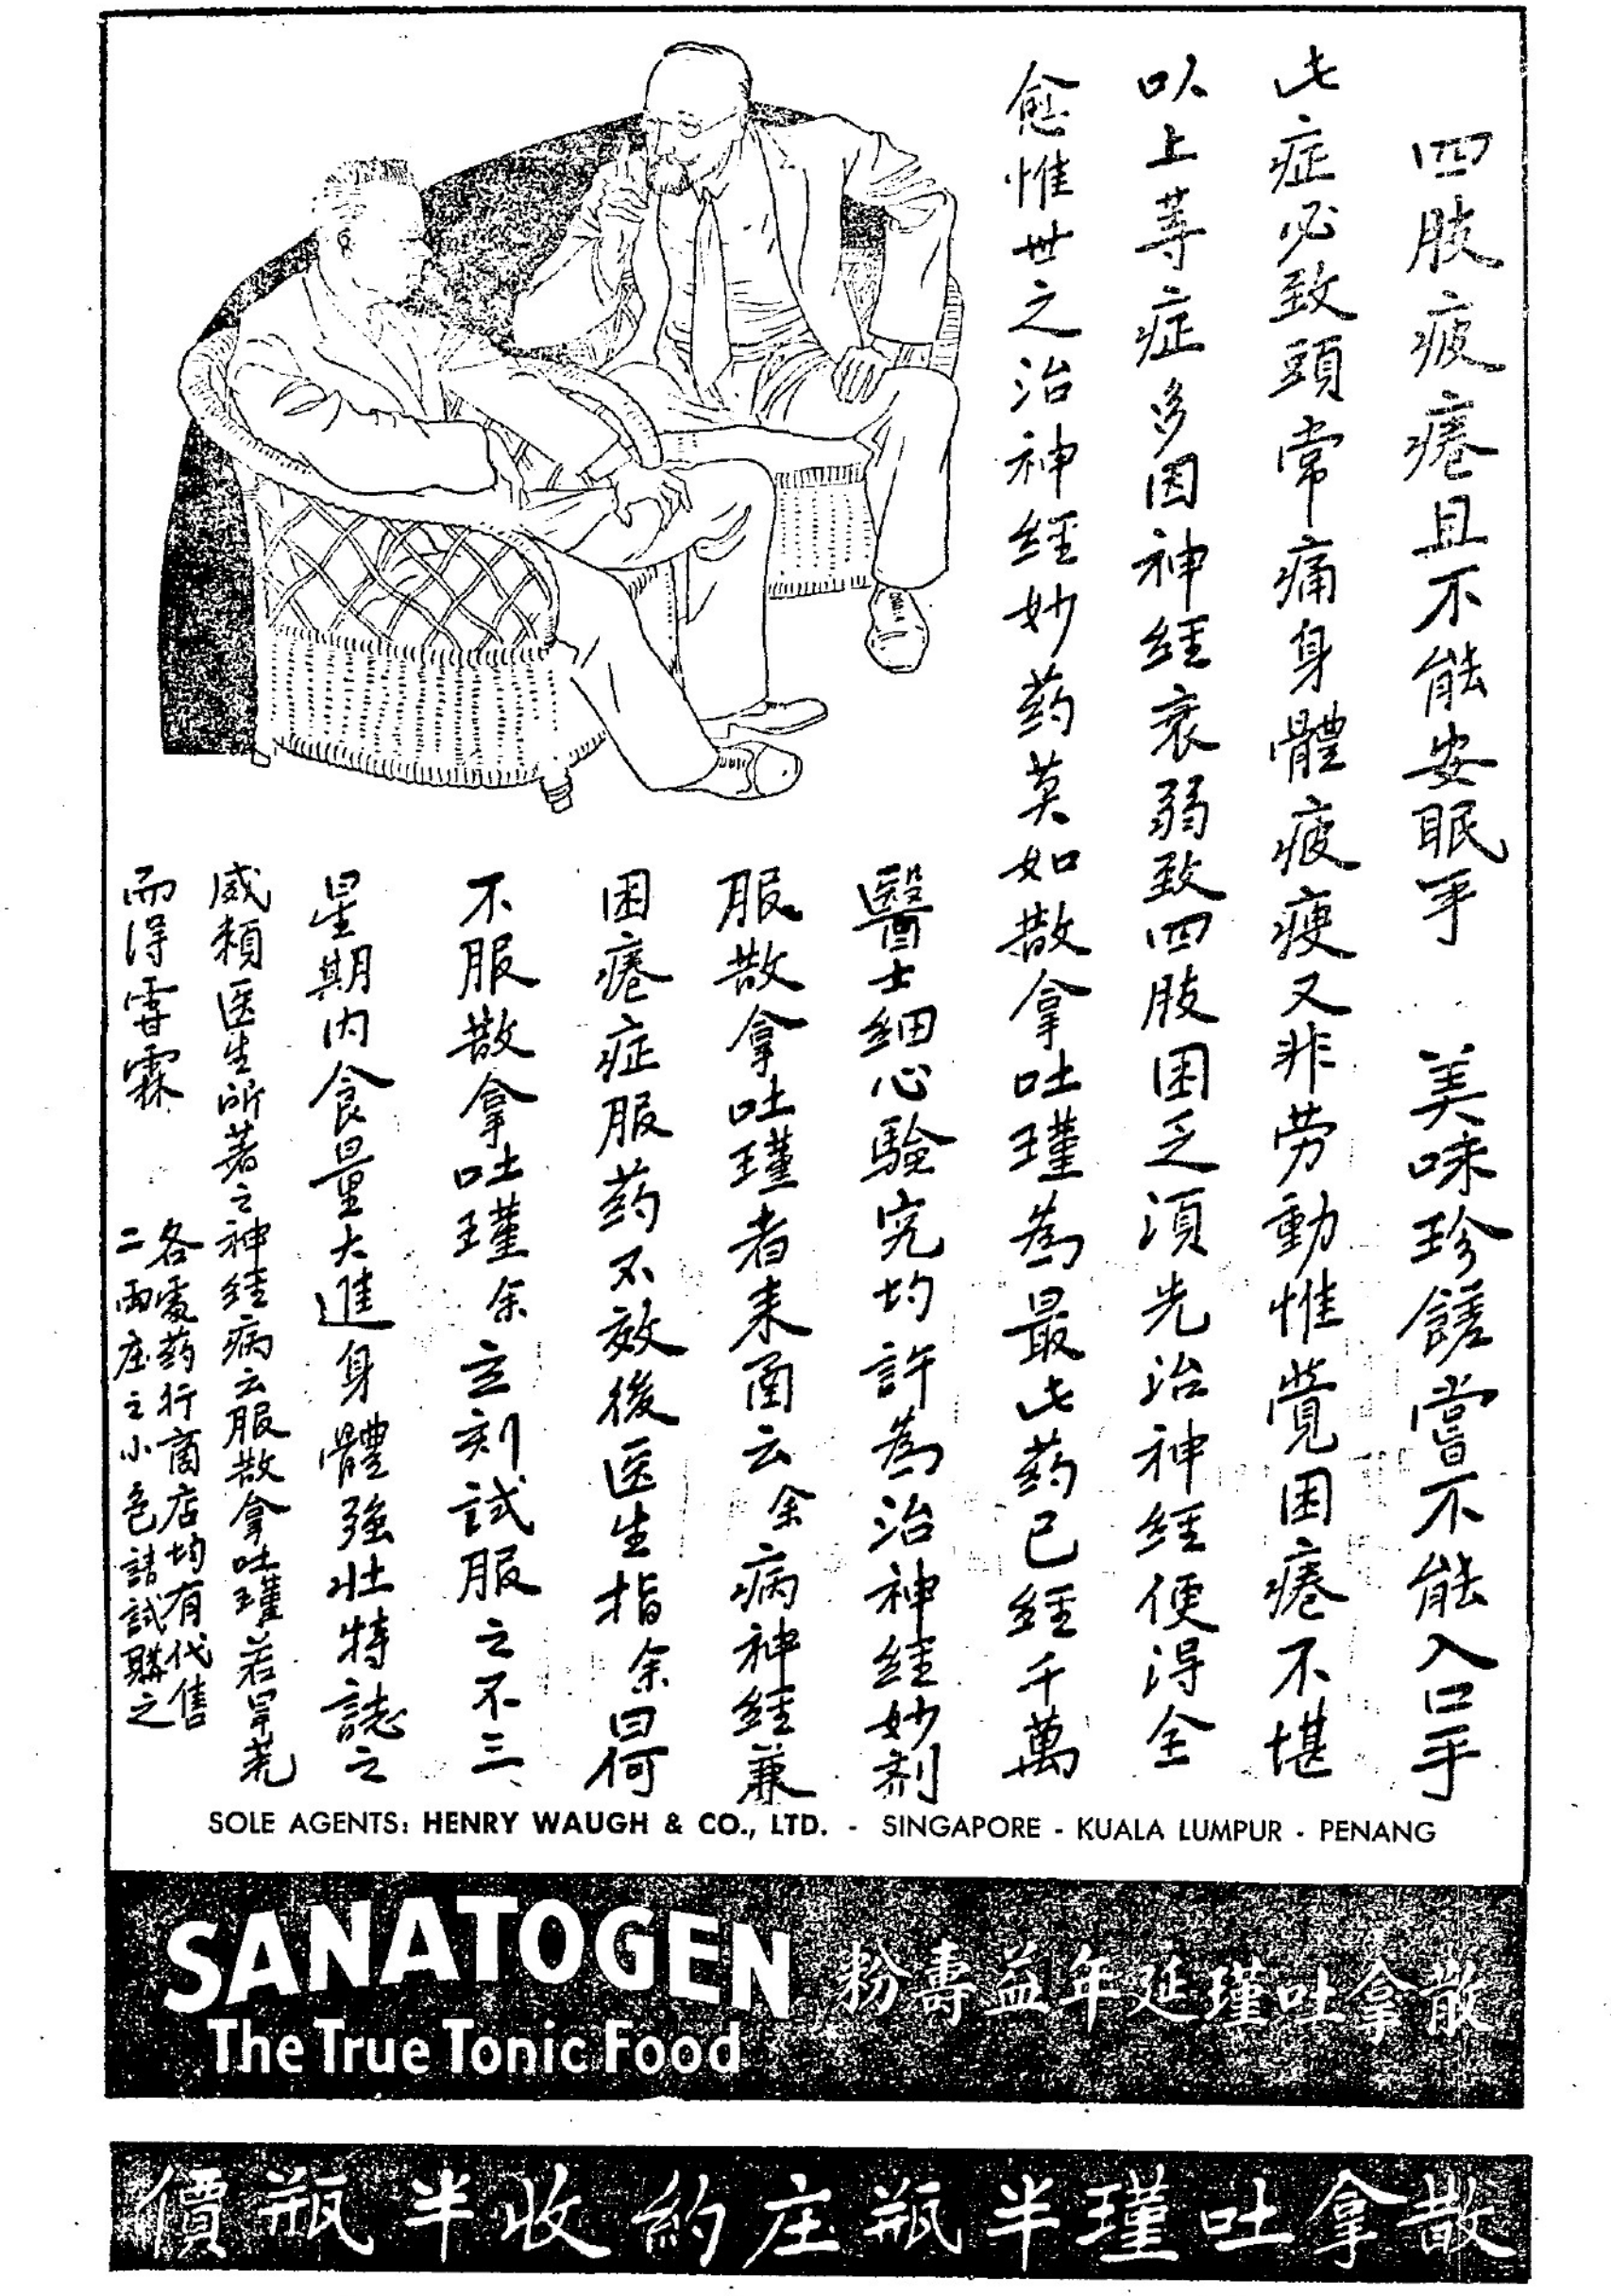 四肢疲瘘且不能安眠乎 美味珍饈嘗不能入口乎
此症必致頭常痛身體疲痩又非劳動惟覚困瘘不堪
以上等症多因神経衰弱致四肢困乏湏先治神経便得全
愈惟世之治神経妙药莫如散拿吐瑾為最此药已経千萬
醫士細心驗究均許為治神経妙剂
服散拿吐瑾者来函云余病神経兼
困瘘症服药不效後医生指余曰何
不服散拿吐瑾余立刻試服之不三
星期内食量大進身體强壮特誌之
威頼医生所著之神経病云服散拿吐瑾若旱苊
而得霄霖
各處药行商店均有代售
二兩庄之小包請試購之
SOLE AGENTS: HENRY WAUGH & CO., LTD. - SINGAPORE - KUALA LUMPUR - PENANG
SANATOGEN
The True Tonic Food
粉壽益年延瑾吐拿散
價瓶半收約庄瓶半瑾吐拿散